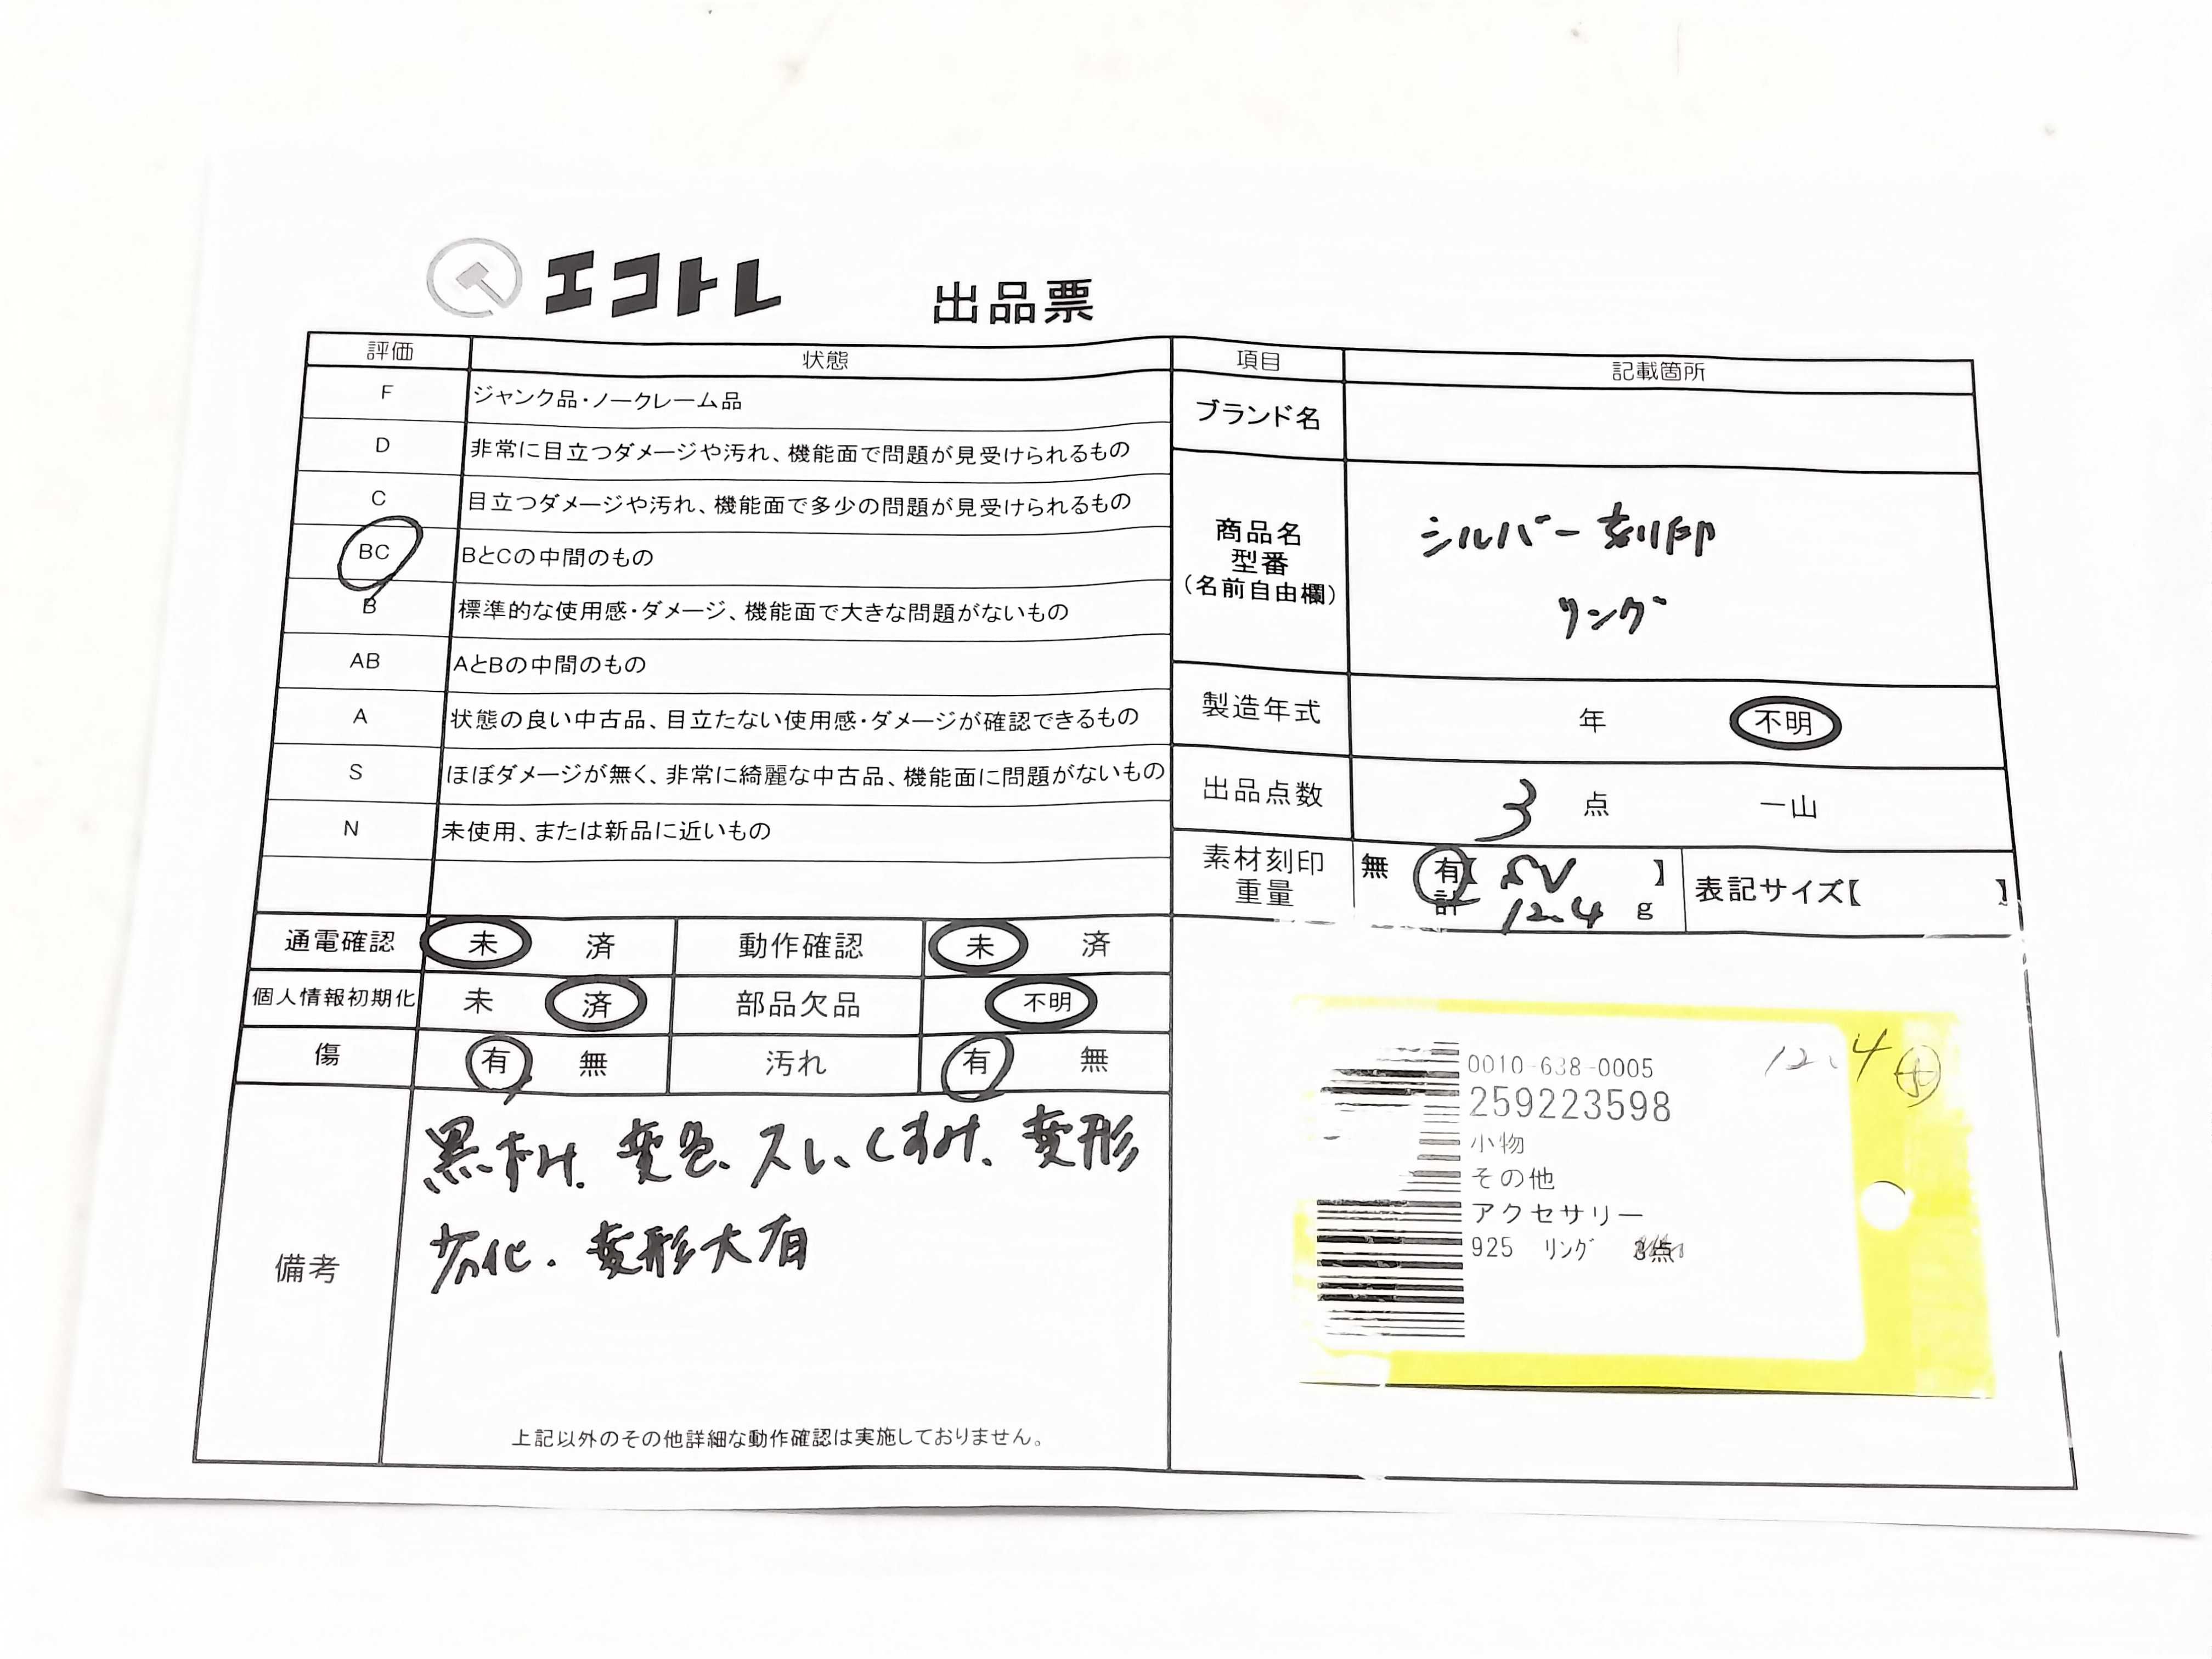 エコトレ 出品票
評価 状態
F ジャンク品・ノークレーム品
D 非常に目立つダメージや汚れ、機能面で問題が見受けられるもの
C 目立つダメージや汚れ、機能面で多少の問題が見受けられるもの
BC BとCの中間のもの
B 標準的な使用感・ダメージ、機能面で大きな問題がないもの
AB AとBの中間のもの
A 状態の良い中古品、目立たない使用感・ダメージが確認できるもの
S ほぼダメージが無く、非常に綺麗な中古品、機能面に問題がないもの
N 未使用、または新品に近いもの
通電確認 未 済 動作確認 未 済
個人情報初期化 未 済 部品欠品 不明
傷 有 無 汚れ 有 無
備考
黒ずみ、変色、スレ、くすみ、変形
劣化、変形大有
上記以外のその他詳細な動作確認は実施しておりません。
項目 記載箇所
ブランド名
商品名
型番
(名前自由欄)
シルバー刻印
リング
製造年式 年 不明
出品点数 3 点 一山
素材刻印
重量
無 有【 SV 】
計 12.4 g
表記サイズ【 】
12.4
0010-638-0005
259223598
小物
その他
アクセサリー
925 リング 3点